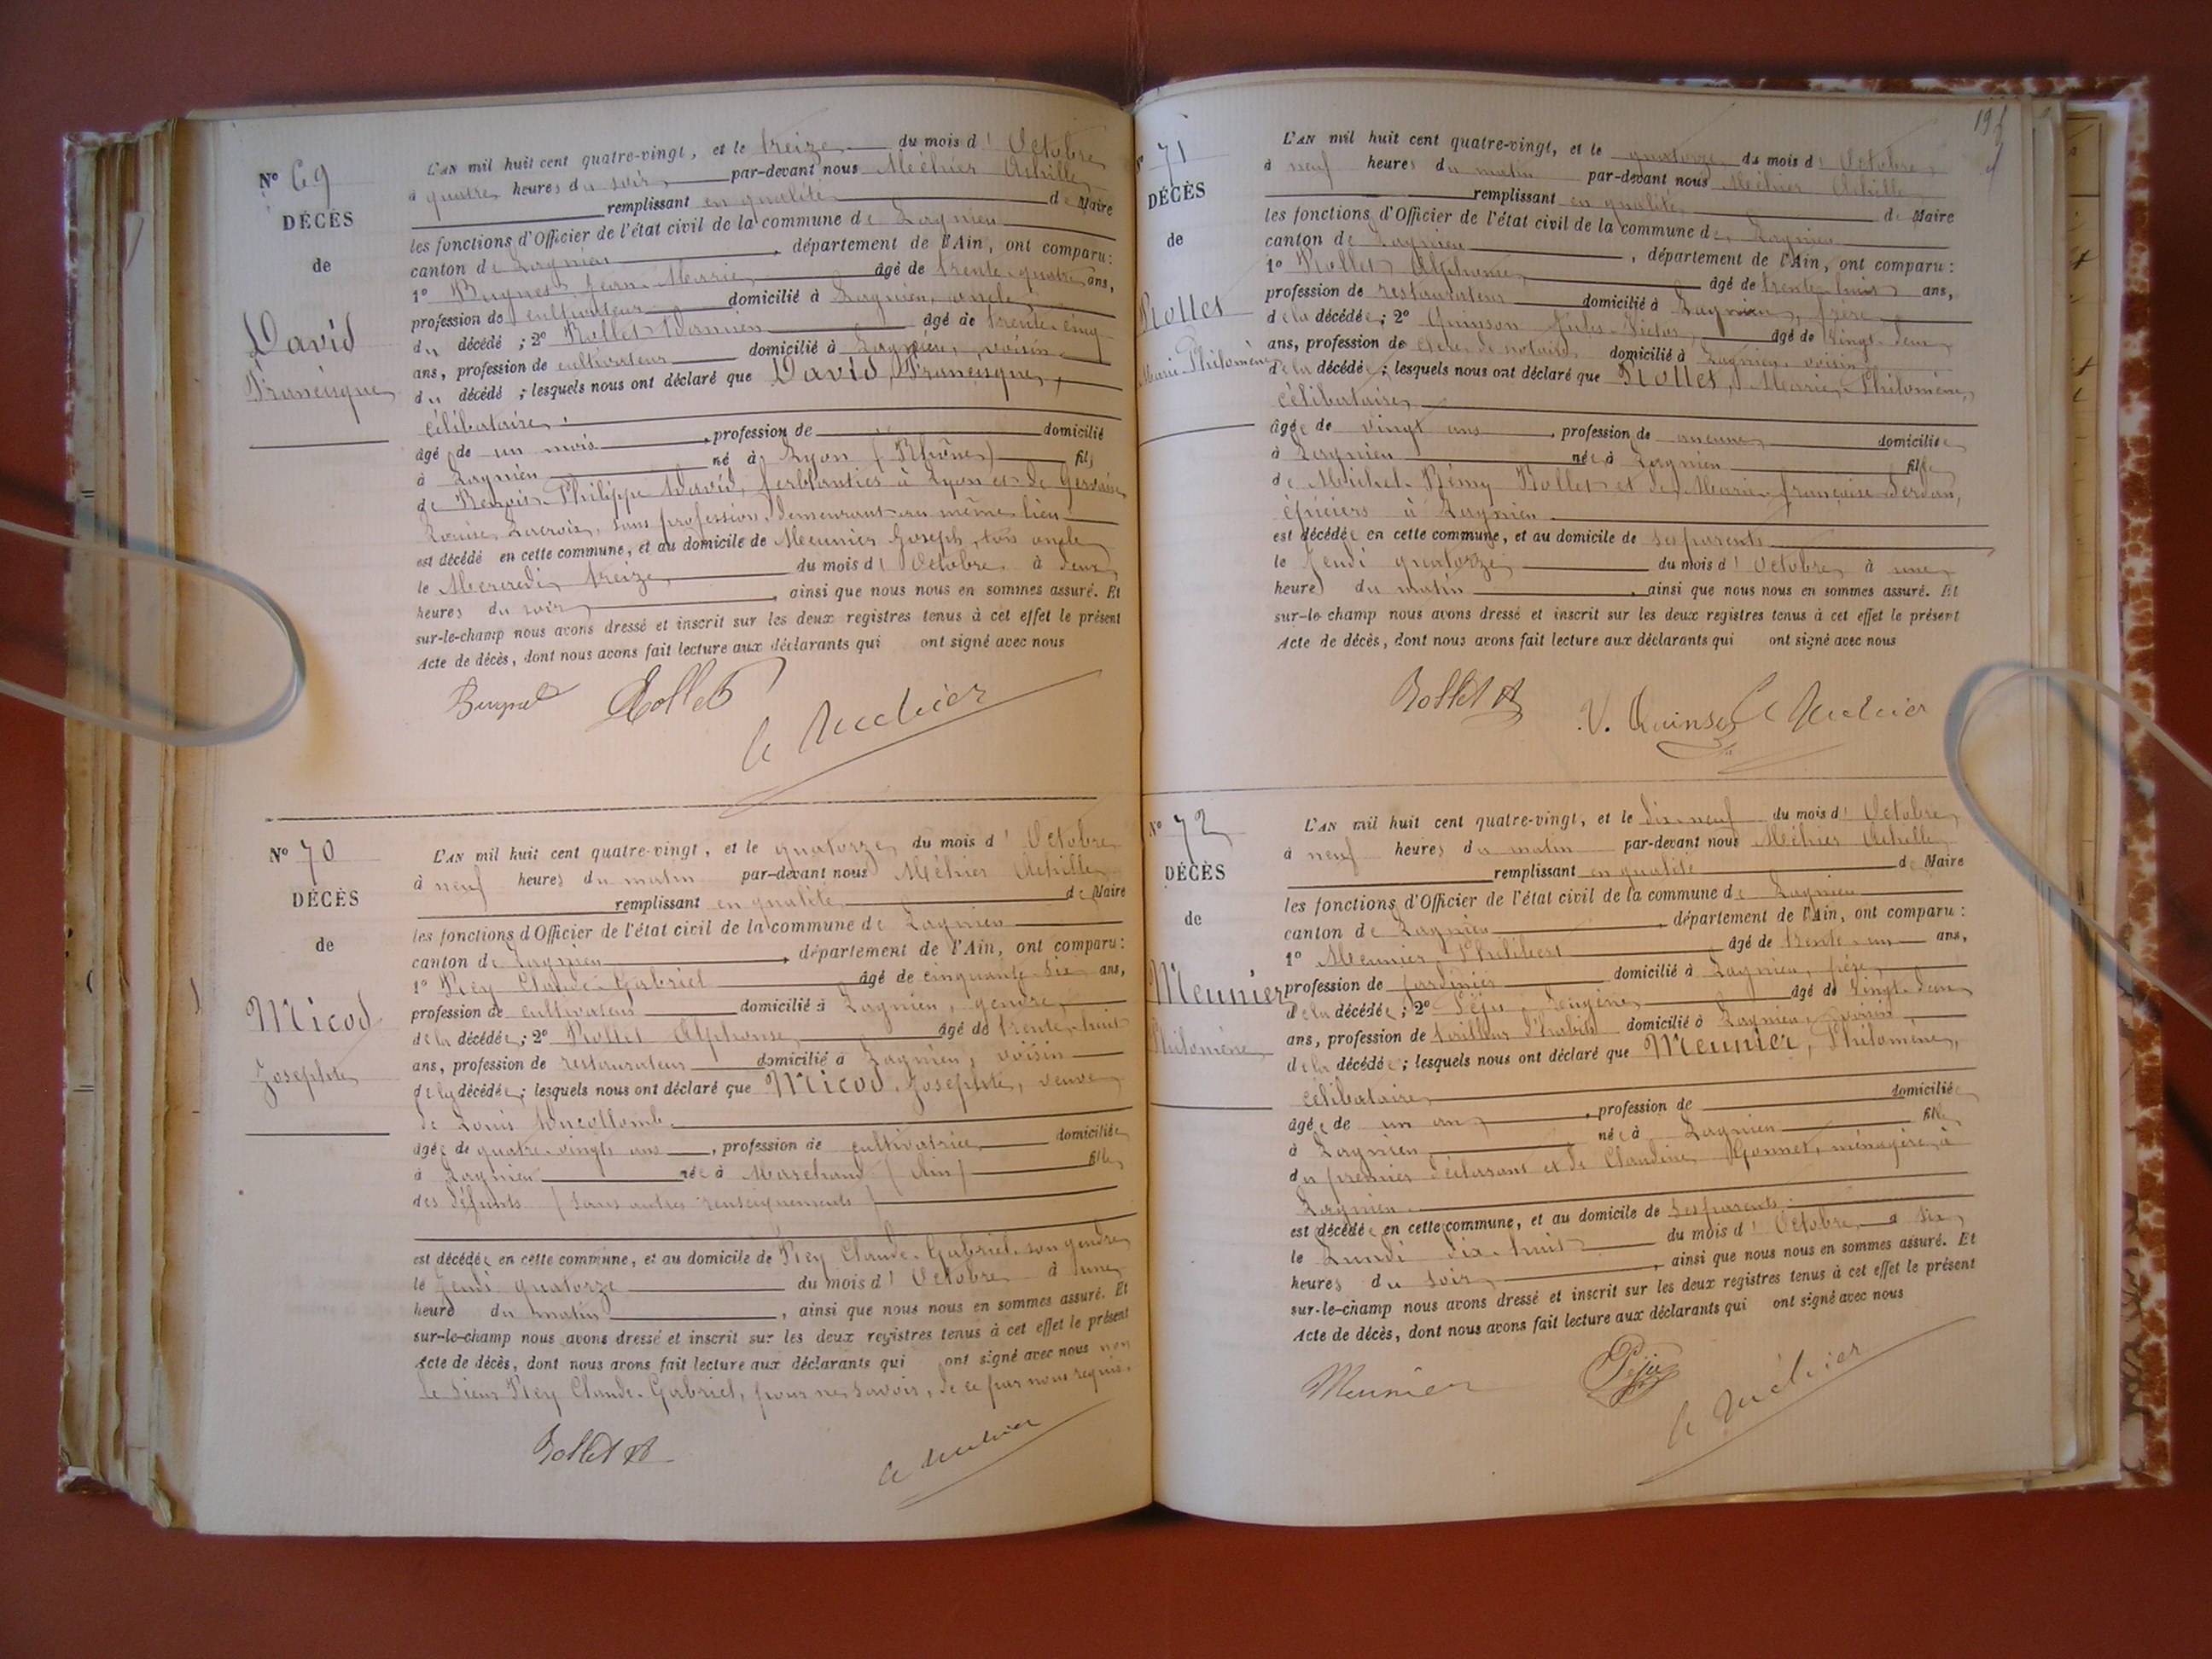 N° 69
DÉCÈS
de
David
Francisque
L'AN mil huit cent quatre-vingt, et le treize du mois d'Octobre
à quatre heures du soir par-devant nous Méhier Achille
remplissant en qualité de Maire
les fonctions d'Officier de l'état civil de la commune de Lagnieu
canton de Lagnieu, département de l'Ain, ont comparu:
1° Jean-Marie âgé de trente-quatre ans,
profession de cultivateur domicilié à Lagnieu, oncle
du décédé ; 2° Rollet Damien âgé de trente-cinq
ans, profession de cultivateur domicilié à Lagnieu, voisin
du décédé ; lesquels nous ont déclaré que David, Francisque,
célibataire,
âgé de un mois, profession de domicilié
à Lagnieu né à Lyon (Rhône) fils
de Benoit-Philippe David, ferblantier à Lyon et de Gervaise
Louise Lacroix, sans profession, demeurant au même lieu
est décédé en cette commune, et au domicile de Meunier Joseph, son oncle
le Mercredi treize du mois d'Octobre à deux
heures du soir, ainsi que nous nous en sommes assuré. Et
sur-le-champ nous avons dressé et inscrit sur les deux registres tenus à cet effet le présent
Acte de décès, dont nous avons fait lecture aux déclarants qui ont signé avec nous
Rollet
A Méhier
N° 70
DÉCÈS
de
Micod
Josephte
L'AN mil huit cent quatre-vingt, et le quatorze du mois d'Octobre
à neuf heures du matin par-devant nous Méhier Achille
remplissant en qualité de Maire
les fonctions d'Officier de l'état civil de la commune de Lagnieu
canton de Lagnieu, département de l'Ain, ont comparu:
1° Rey Claude-Gabriel âgé de cinquante-six ans,
profession de cultivateur domicilié à Lagnieu, gendre
de la décédée ; 2° Rollet Alphonse, âgé de trente-huit
ans, profession de restaurateur domicilié à Lagnieu, voisin
de la décédée ; lesquels nous ont déclaré que Micod, Josephte, veuve
de Louis Ducollomb
âgée de quatre-vingts ans, profession de cultivatrice domiciliée
à Lagnieu née à Marchand (Ain) fille
des défunts (sans autres renseignements)
est décédée en cette commune, et au domicile de Rey Claude-Gabriel, son gendre
le Jeudi quatorze du mois d'Octobre à une
heure du matin, ainsi que nous nous en sommes assuré. Et
sur-le-champ nous avons dressé et inscrit sur les deux registres tenus à cet effet le présent
Acte de décès, dont nous avons fait lecture aux déclarants qui ont signé avec nous non
le sieur Rey Claude-Gabriel, pour ne savoir, de ce par nous requis.
Rollet A
A Méhier
195
N° 71
DÉCÈS
de
Rollet
Marie-Philomène
L'AN mil huit cent quatre-vingt, et le quatorze du mois d'Octobre
à neuf heures du matin par-devant nous Méhier Achille
remplissant en qualité de Maire
les fonctions d'Officier de l'état civil de la commune de Lagnieu
canton de Lagnieu, département de l'Ain, ont comparu :
1° Rollet Alphonse âgé de trente-huit ans,
profession de restaurateur domicilié à Lagnieu, frère
de la décédée ; 2° Quinson Jules-Victor, âgé de vingt-deux
ans, profession de clerc de notaire domicilié à Lagnieu, voisin
de la décédée ; lesquels nous ont déclaré que Rollet, Marie-Philomène,
célibataire,
âgée de vingt ans, profession de aucune domiciliée
à Lagnieu née à Lagnieu fille
de Michel-Rémy Rollet et de Marie-Françoise
épiciers à Lagnieu
est décédée en cette commune, et au domicile de ses parents
le Jeudi quatorze du mois d'Octobre à une
heure du matin, ainsi que nous nous en sommes assuré. Et
sur-le-champ nous avons dressé et inscrit sur les deux registres tenus à cet effet le présent
Acte de décès, dont nous avons fait lecture aux déclarants qui ont signé avec nous
Rollet A
V. Quinson
A Méhier
N° 72
DÉCÈS
de
Meunier
Philomène
L'AN mil huit cent quatre-vingt, et le dix-neuf du mois d'Octobre
à neuf heures du matin par-devant nous Méhier Achille
remplissant en qualité de Maire
les fonctions d'Officier de l'état civil de la commune de Lagnieu
canton de Lagnieu, département de l'Ain, ont comparu :
1° Meunier Philibert âgé de trente-un ans,
profession de jardinier domicilié à Lagnieu, père
de la décédée ; 2° Péju Eugène, âgé de vingt-deux
ans, profession de tailleur d'habits domicilié à Lagnieu, voisin
de la décédée ; lesquels nous ont déclaré que Meunier, Philomène,
célibataire,
âgée de un an, profession de domiciliée
à Lagnieu née à Lagnieu fille
du premier déclarant et de Claudine Gonnet, ménagère à
Lagnieu.
est décédée en cette commune, et au domicile de ses parents
le Lundi dix-huit du mois d'Octobre à six
heures du soir, ainsi que nous nous en sommes assuré. Et
sur-le-champ nous avons dressé et inscrit sur les deux registres tenus à cet effet le présent
Acte de décès, dont nous avons fait lecture aux déclarants qui ont signé avec nous
Meunier
Péju
A Méhier